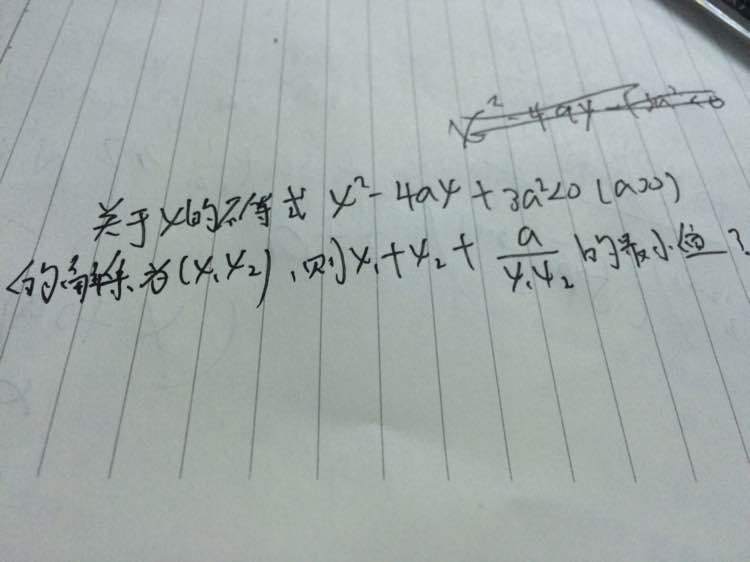 关于x的不等式 x²-4ax+3a²<0 (a>0)
的解集为(x₁,x₂),则x₁+x₂+\frac{a}{x₁x₂}的最小值?